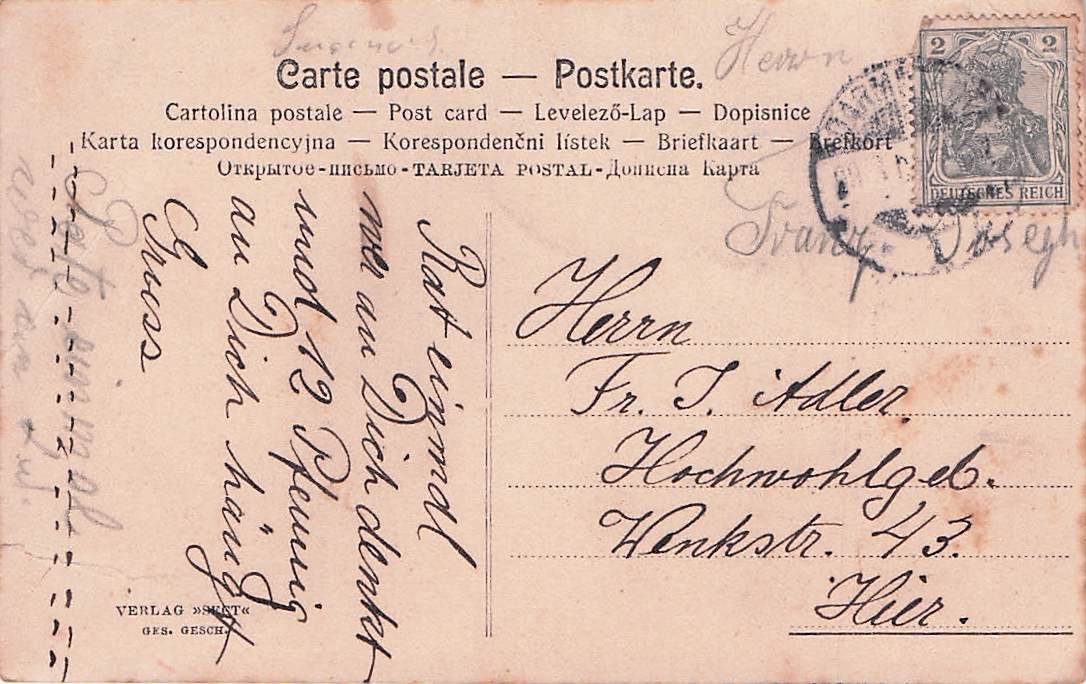 Carte postale — Postkarte.
Cartolina postale — Post card — Levelező-Lap — Dopisnice
Karta korespondencyjna — Korespondenčni lístek — Briefkaart — Brefkort
Открытое-письмо-TARJETA POSTAL-Дописна Карта
Herrn
Franz Joseph
2 2
DEUTSCHES REICH
Rat einmal
wer an Dich denkt
und 12 Pfennig
an Dich hängt
Gruss
Rate einmal
wer an
Herrn
Fr. J. Adler.
Hochwohlgeb.
Wenkstr. 43.
Hier.
VERLAG »SECT«
GES. GESCH.